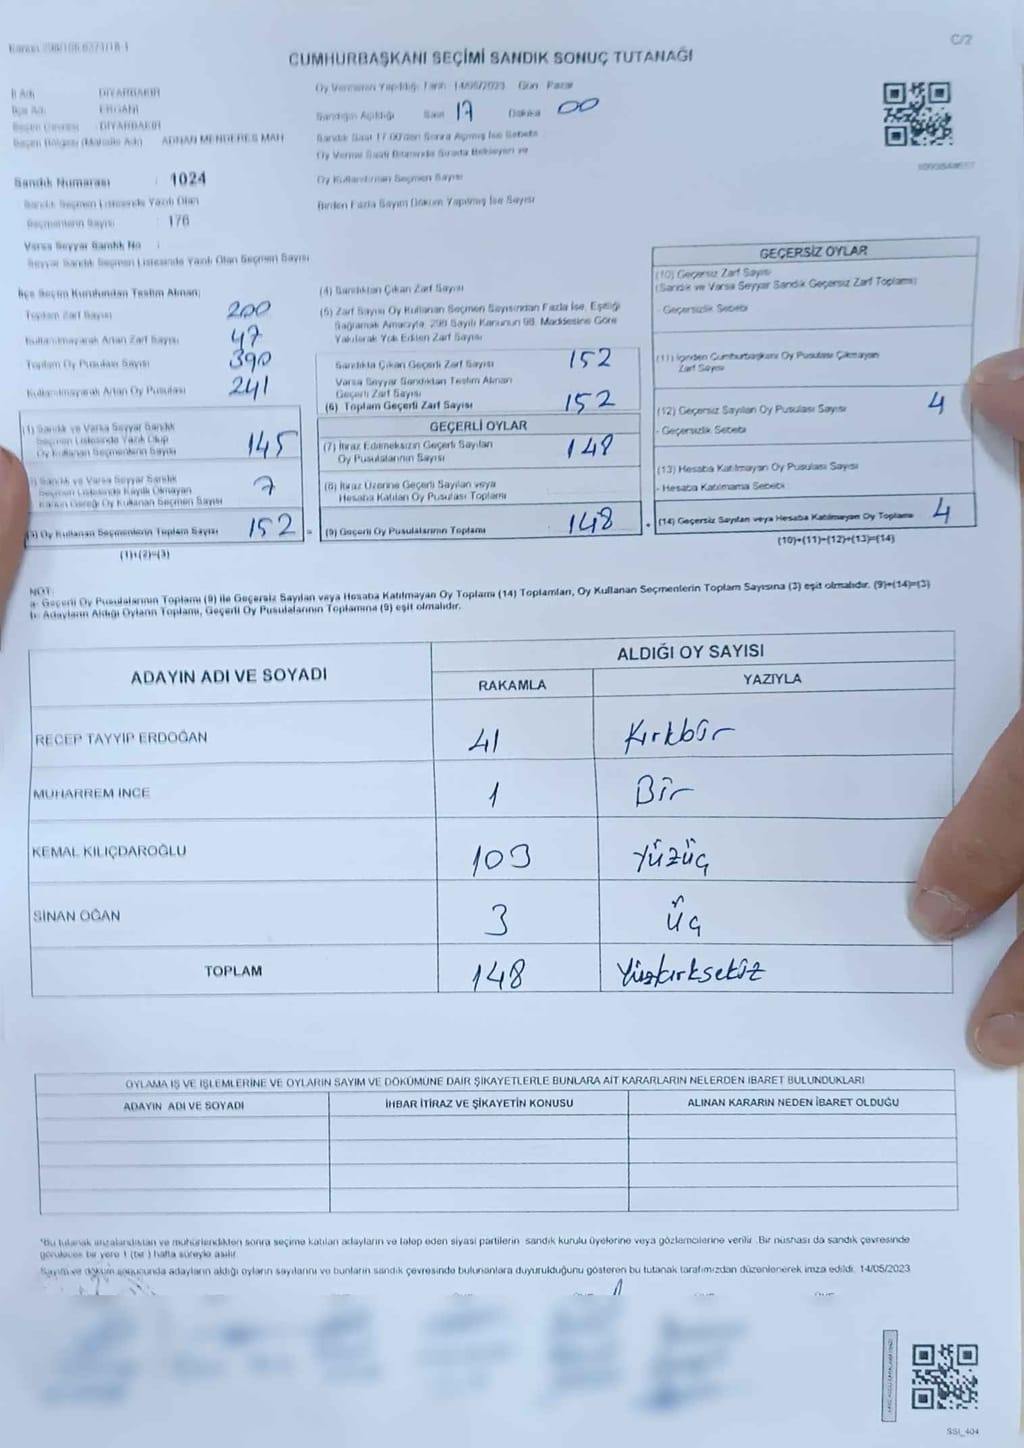 C/2
CUMHURBAŞKANI SEÇİMİ SANDIK SONUÇ TUTANAĞI
İl Adı DİYARBAKIR
İlçe Adı ERGANİ
Seçim Çevresi : DİYARBAKIR
Seçim Bölgesi (Mahalle Adı) ADNAN MENDERES MAH
Sandık Numarası : 1024
Sandık Seçmen Listesinde Yazılı Olan
Seçmenlerin Sayısı : 176
Varsa Seyyar Sandık No :
Seyyar Sandık Seçmen Listesinde Yazılı Olan Seçmen Sayısı
Oy Vermenin Yapıldığı Tarih 14/05/2023 Gün Pazar
Sandığın Açıldığı Saat 17 Dakika 00
Sandık Saat 17.00'den Sonra Açılmış İse Sebebi
Oy Verme Saati Bitiminde Sırada Bekleyen ve
Oy Kullandırılan Seçmen Sayısı
Birden Fazla Sayım Döküm Yapılmış İse Sayısı
İlçe Seçim Kurulundan Teslim Alınan;
Toplam Zarf Sayısı 200
Kullanılmayarak Artan Zarf Sayısı 47
Toplam Oy Pusulası Sayısı 390
Kullanılmayarak Artan Oy Pusulası 241
(1) Sandık ve Varsa Seyyar Sandık
Seçmen Listesinde Yazılı Olup
Oy Kullanan Seçmenlerin Sayısı 145
Sandık ve Varsa Seyyar Sandık
Seçmen Listesinde Kayıtlı Olmayan
Kanun Gereği Oy Kullanan Seçmen Sayısı 7
(3) Oy Kullanan Seçmenlerin Toplam Sayısı 152 =
(1)+(2)=(3)
(4) Sandıktan Çıkan Zarf Sayısı
(5) Zarf Sayısı Oy Kullanan Seçmen Sayısından Fazla İse, Eşitliği
Sağlamak Amacıyla, 298 Sayılı Kanunun 98. Maddesine Göre
Yakılarak Yok Edilen Zarf Sayısı
Sandıkta Çıkan Geçerli Zarf Sayısı 152
Varsa Seyyar Sandıktan Teslim Alınan
Geçerli Zarf Sayısı
(6) Toplam Geçerli Zarf Sayısı 152
GEÇERLİ OYLAR
(7) İtiraz Edilmeksizin Geçerli Sayılan
Oy Pusulalarının Sayısı 148
(8) İtiraz Üzerine Geçerli Sayılan veya
Hesaba Katılan Oy Pusulası Toplamı
(9) Geçerli Oy Pusulalarının Toplamı 148
GEÇERSİZ OYLAR
(10) Geçersiz Zarf Sayısı
(Sandık ve Varsa Seyyar Sandık Geçersiz Zarf Toplamı)
- Geçersizlik Sebebi
(11) İçinden Cumhurbaşkanı Oy Pusulası Çıkmayan
Zarf Sayısı
(12) Geçersiz Sayılan Oy Pusulası Sayısı 4
- Geçersizlik Sebebi
(13) Hesaba Katılmayan Oy Pusulası Sayısı
- Hesaba Katılmama Sebebi
+ (14) Geçersiz Sayılan veya Hesaba Katılmayan Oy Toplamı 4
(10)+(11)+(12)+(13)=(14)
NOT:
a- Geçerli Oy Pusulalarının Toplamı (9) ile Geçersiz Sayılan veya Hesaba Katılmayan Oy Toplamı (14) Toplamları, Oy Kullanan Seçmenlerin Toplam Sayısına (3) eşit olmalıdır. (9)+(14)=(3)
b- Adayların Aldığı Oyların Toplamı, Geçerli Oy Pusulalarının Toplamına (9) eşit olmalıdır.
ADAYIN ADI VE SOYADI
ALDIĞI OY SAYISI
RAKAMLA YAZIYLA
RECEP TAYYİP ERDOĞAN 41 Kırkbir
MUHARREM İNCE 1 Bir
KEMAL KILIÇDAROĞLU 103 Yüzüç
SİNAN OĞAN 3 Üç
TOPLAM 148 Yüzkırksekiz
OYLAMA İŞ VE İŞLEMLERİNE VE OYLARIN SAYIM VE DÖKÜMÜNE DAİR ŞİKAYETLERLE BUNLARA AİT KARARLARIN NELERDEN İBARET BULUNDUKLARI
ADAYIN ADI VE SOYADI İHBAR İTİRAZ VE ŞİKAYETİN KONUSU ALINAN KARARIN NEDEN İBARET OLDUĞU
*Bu tutanak imzalandıktan ve mühürlendikten sonra seçime katılan adayların ve talep eden siyasi partilerin sandık kurulu üyelerine veya gözlemcilerine verilir. Bir nüshası da sandık çevresinde
görülecek bir yere 1 (bir) hafta süreyle asılır.
Sayım ve döküm sonucunda adayların aldığı oyların sayılarını ve bunların sandık çevresinde bulunanlara duyurulduğunu gösteren bu tutanak tarafımızdan düzenlenerek imza edildi. 14/05/2023
SSI_404